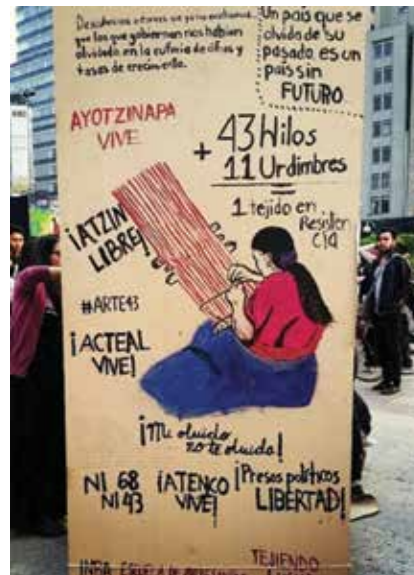 que los que gobiernan nos habían
olvidado en la euforia de cifras y
tasas de crecimiento.
Un país que se
olvida de su
pasado, es un
país sin
FUTURO
AYOTZINAPA
VIVE
+ 43 Hilos
11 Urdimbres
=
1 tejido en
Resisten
cia
¡ATZIN
LIBRE!
#ARTE43
¡ACTEAL
VIVE!
¡Mi olvido
no te olvida!
NI 68
NI 43
¡ATENCO
VIVE!
¡Presos políticos
LIBERTAD!
INBA ESCUELA DE
TEJIENDO